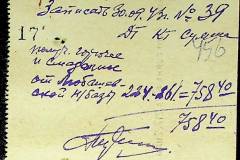 Записать 30.09. № 39
Дт Кт Сумма
17
получ. горючее
и смазочные
от Любашев-
ской н/базы 224-261 = 758 40
758 40